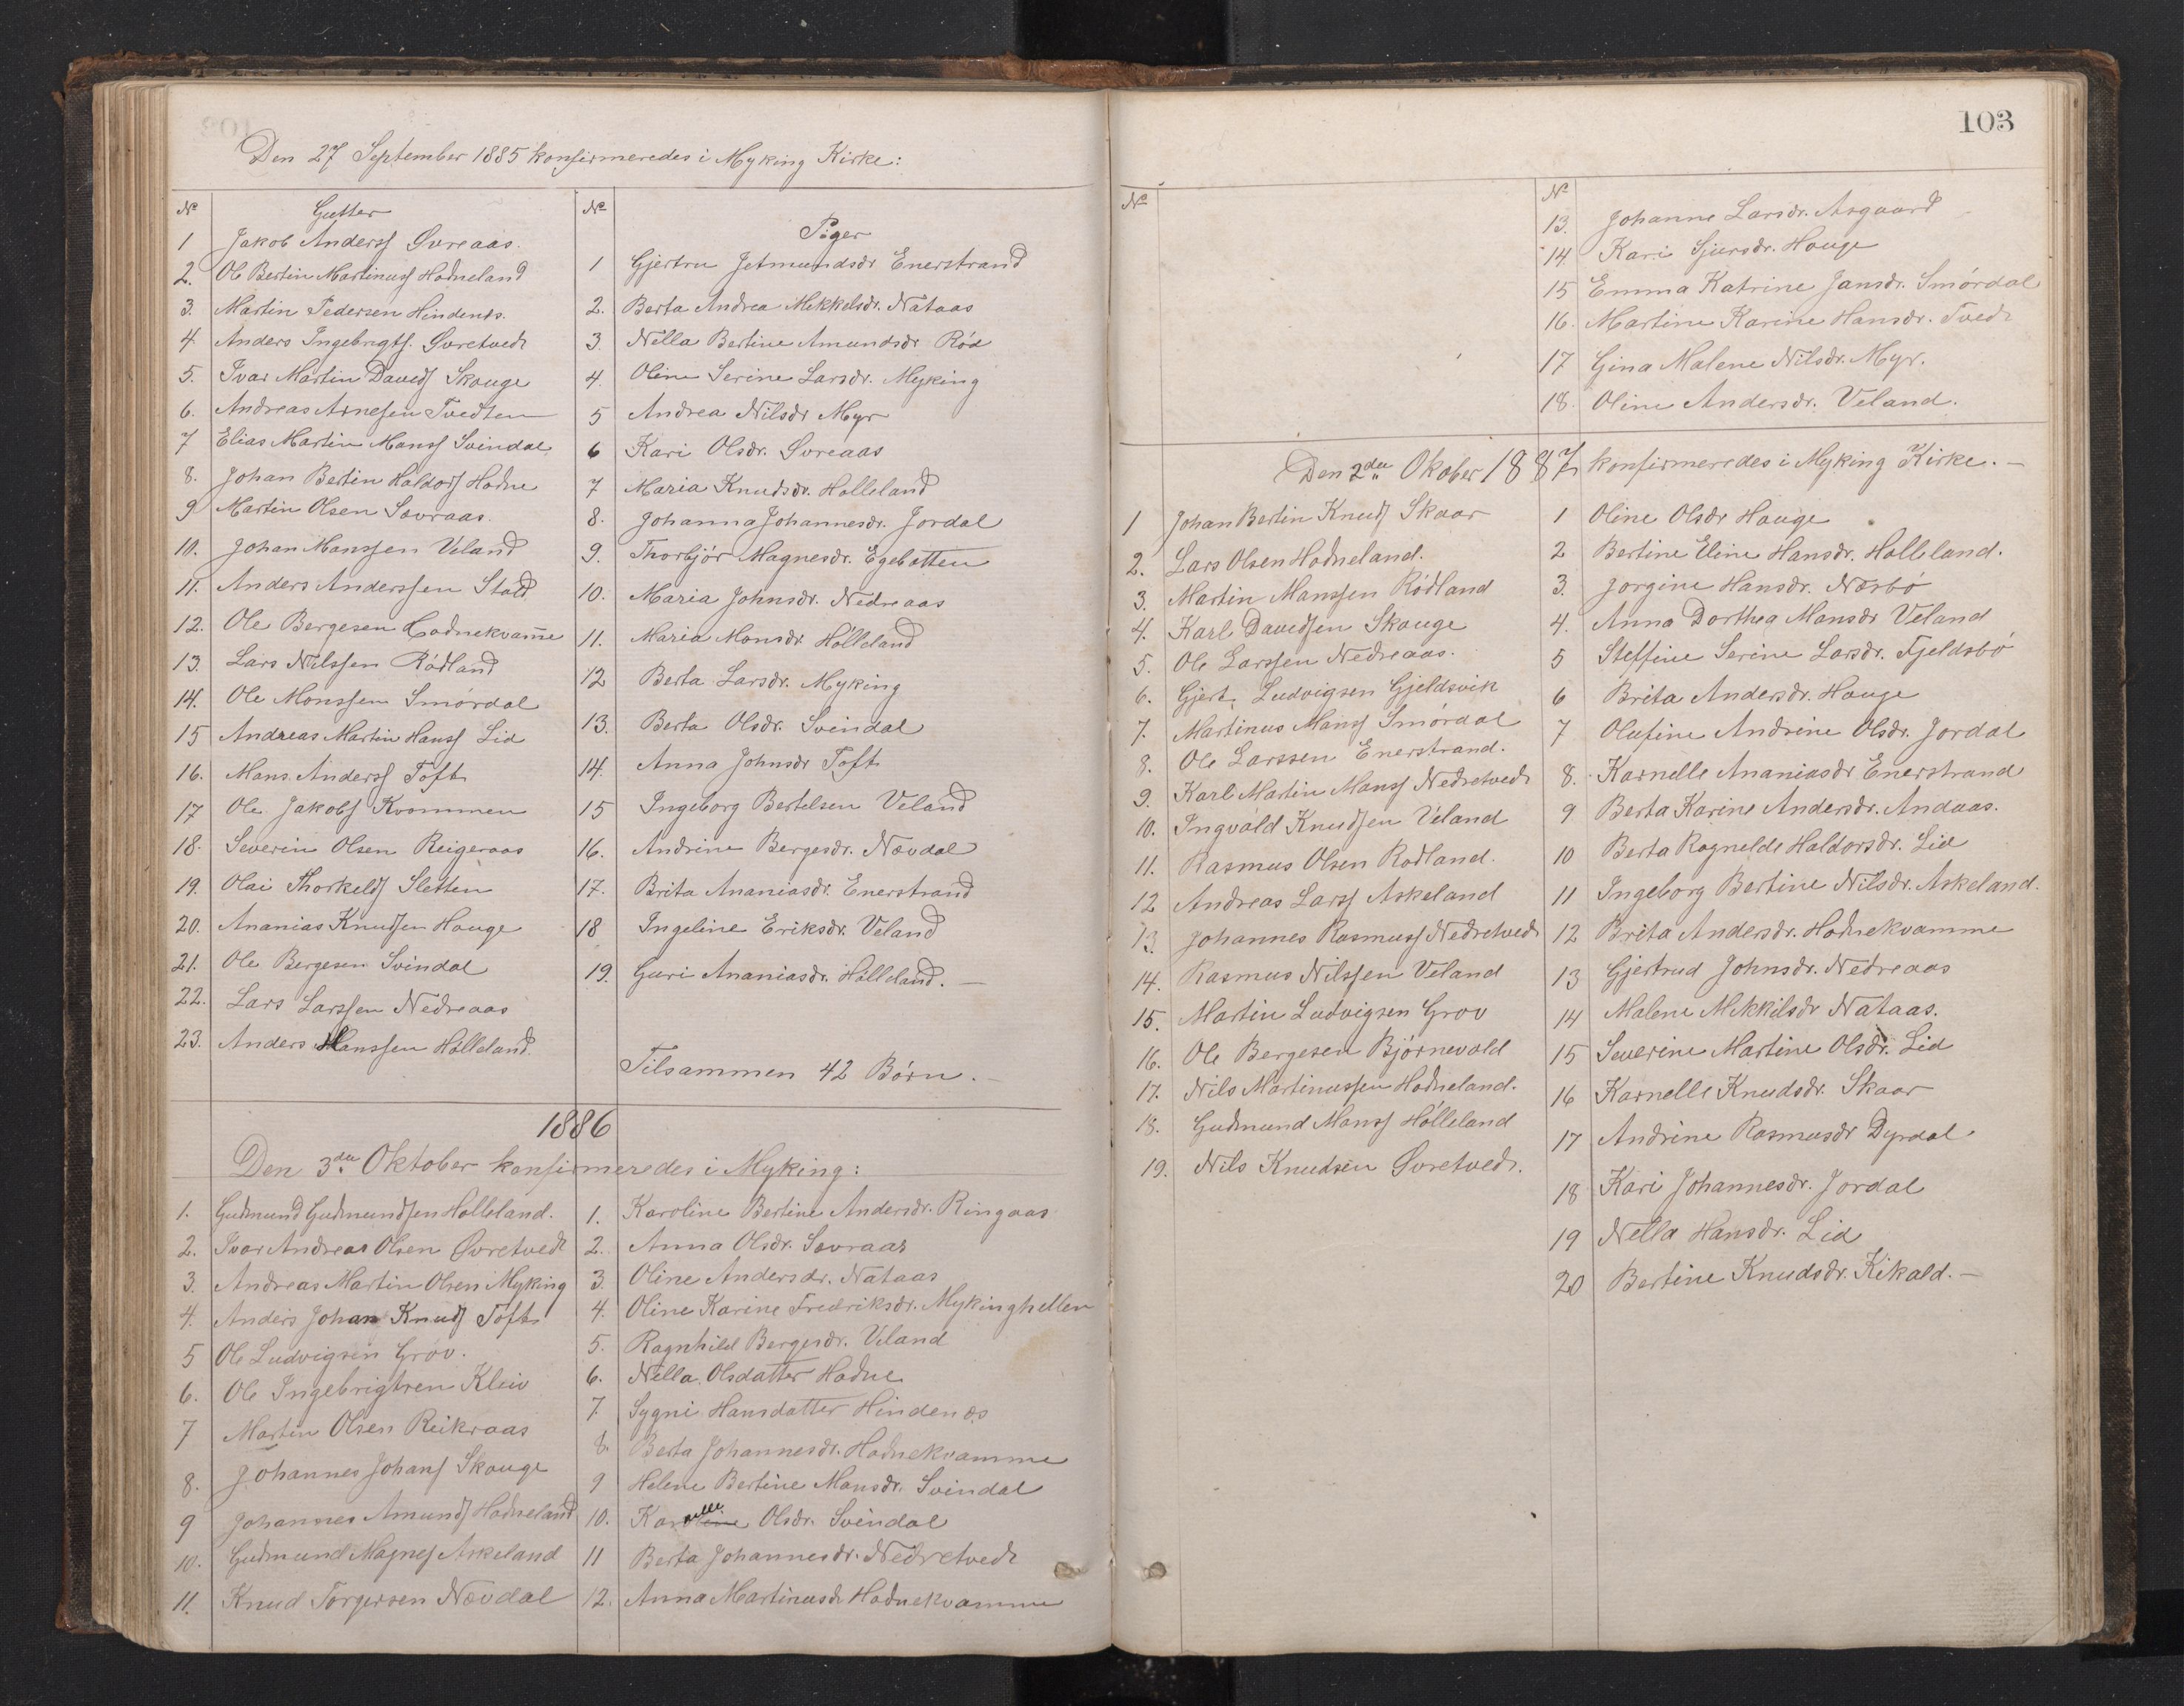 103
Den 27 September 1885 konfirmeredes i Myking Kirke:
No Gutter
1 Jakob Anderss Øvreaas.
2. Ole Bertin Martinuss Hodneland
3. Martin Pedersen Hindenes.
4. Anders Ingebrigts. Øvretvedt
5. Ivar Martin Davids Skouge
6. Andreas Arnesen Tvedten
7 Elias Martin Manss Svindal
8. Johan Bertin Haldors Hodne
9 Martin Olsen Sovraas.
10. Johan Manssen Veland
11. Anders Anderssen Stold
12. Ole Bergesen Hodnekvam̅e
13. Lars Nilssen Rödland
14. Ole Monssen Smördal
15 Andreas Martin Hanss Lid
16. Mans Anderss Toft
17 Ole Jakobs Kvommen
18. Severin Olsen Reigeraas
19. Olai Thorkelds Sletten
20. Ananias Knudsen Houge
21. Ole Bergesen Svindal
22. Lars Larssen Nedreaas
23. Anders Hanssen Hölleland.
No Piger
1 Gjertru Jetmundsdr Enerstrand
2. Berta Andrea Mekkelsdr. Nataas
3. Nella Bertine Amundsdr Röd
4. Oline Serine Larsdr. Myking
5 Andrea Nilsdr Myr
6 Kari Olsdr. Øvreaas
7 Maria Knudsdr. Holleland
8. Johanna Johannesdr. Jordal
9. Thorbjör Magnesdr. Egebotten
10. Maria Johnsdr. Nedreaas
11. Maria Monsdr Hölleland
12 Berta Larsdr. Myking
13. Berta Olsdr. Svindal
14. Anna Johnsdr Toft
15 Ingeborg Bertelsen Veland
16. Andrine Bergesdr. Nævdal
17. Brita Ananiasdr. Enerstrand
18 Ingeline Eriksdr. Veland
19. Guri Ananiasdr. Hölleland. —
Tilsammen 42 Börn. —
1886
Den 3die Oktober konfirmeredes i Myking:
1. Gudmund Gudmundsen Holleland.
2. Ivar Andreas Olsen Øvretvedt
3. Andreas Martin Olsen Myking
4. Anders Johan Knuds Toft
5 Ole Ludvigsen Grov.
6. Ole Ingebrigtsen Kleiv
7 Martin Olsen Reikraas
8. Johannes Johans Skouge
9 Johannes Amunds Hodneland
10. Gudmund Magnes Askeland
11. Knud Torgersen Nævdal
1. Karoline Bertine Andersdr. Ringaas
2. Anna Olsdr. Sovraas
3 Oline Andersdr. Nataas
4. Oline Karine Fredriksdr. Mykinghellen
5. Ragnhild Bergesdr. Veland
6. Nella Olsdatter Hodne
7. Sygni Hansdatter Hindenes
8. Berta Johannesdr. Hodnekvamme
9 Helene Bertine Mansdr. Svindal
10. Karnelle Olsdr. Svindal
11 Berta Johannesdr. Nedretvedt
12. Anna Martinusdr Hodnekvamme
No
No
13. Johanne Larsdr. Asgaard
14. Kari Sjursdr. Houge
15 Emma Katrine Jansdr. Smördal
16. Martine Karine Hansdr. Tvedt
17 Gina Malene Nilsdr. Myr.
18. Oline Andersdr. Veland.
Den 2den Okober 1887 konfirmeredes i Myking Kirke. —
1 Johan Bertin Knuds Skaar
2. Lars Olsen Hodneland.
3. Martin Manssen Rödland
4. Karl Davidsen Skauge
5. Ole Larssen Nedreaas.
6. Gjert. Ludvigsen Gjeldsvik
7. Martinus Manss Smördal
8. Ole Larssen Enerstrand.
9. Karl Martin Manss Nedretvedt
10. Ingvald Knudsen Veland
11. Rasmus Olsen Rodland.
12 Andreas Larss Askeland
13. Johannes Rasmuss Nedretvedt
14. Rasmus Nilssen Veland
15. Martin Ludvigsen Grov
16. Ole Bergesen Björnevold
17. Nils Martinussen Hodneland.
18. Gudmund Manss Hölleland
19. Nils Knudsen Øvretvedt.
1 Oline Olsdr Houge
2 Bertine Eline Hansdr. Holleland.
3. Jorgine Hansdr. Næsbö
4. Anna Dorthea Mansdr Veland
5 Steffine Serine Larsdr. Fjeldsbö
6 Brita Andersdr. Houge
7 Olufine Andrine Olsdr. Jordal
8. Karnelle Ananiasdr Enerstrand
9 Berta Karine Andersdr. Andaas.
10 Berta Ragnelde Haldorsdr. Lid
11 Ingeborg Bertine Nilsdr. Askeland.
12 Brita Andersdr. Hodnekvamme
13 Gjertrud Johnsdr. Nedreaas
14 Malene Mekkilsdr Nataas.
15 Severine Martine Olsdr. Lid
16 Karnelle Knudsdr. Skaar
17 Andrine Rasmusdr Dyrdal
18 Kari Johannesdr. Jordal
19 Nella Hansdr. Lid
20 Bertine Knudsdr. Kikald. —